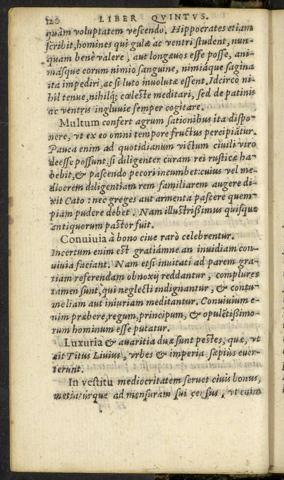 120 LIBER QVINTVS.
quàm voluptatem vescendo. Hippocrates etiam
scribit, homines qui gulæ ac ventri student, nun-
quam benè valere, aut longæuos esse posse, ani-
masque eorum nimio sanguine, nimiáque sagina
ita impediri, ac si luto inuolutæ essent. Id circo ni-
hil tenue, nihilq; cæleste meditari, sed de patinis
ac ventris ingluuie semper cogitare.
Multum confert agrum sationibus ita dispo-
nere, vt ex eo omni tempore fructus percipiatur.
Pauca enim ad quotidianum victum ciuili viro
deesse possunt, si diligenter curam rei rusticæ ha-
bebit, & pascendo pecori incumbet: cuius vel me-
diocrem diligentiam rem familiarem augere di-
xit Cato: nec greges aut armenta pascere quem-
piam pudere debet. Nam illustrißimus quisque
antiquorum pastor fuit.
Conuiuia à bono ciue rarò celebrentur.
Incertum enim est gratiamne an inuidiam con-
uiuia faciant. Nam etsi inuitati ad parem gra-
tiam referendam obnoxij reddantur, complures
tamen sunt, qui neglecti indignantur, & contu-
meliam aut iniuriam meditantur. Conuiuium e-
nim præbere, regum, principum, & opulētißimo-
rum hominum esse putatur.
Luxuria & auaritia duæ sunt pestes, quæ, vt
ait Titus Liuius, vrbes & imperia sæpius euer-
terunt.
In vestitu mediocritatem seruet ciuis bonus,
metiaturque ad mensuram sui census, vt enim